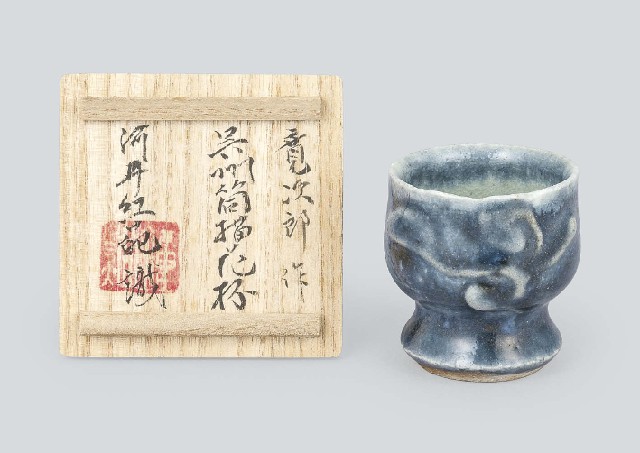 寛次郎作
呉州筒描花杯
河井紅葩識